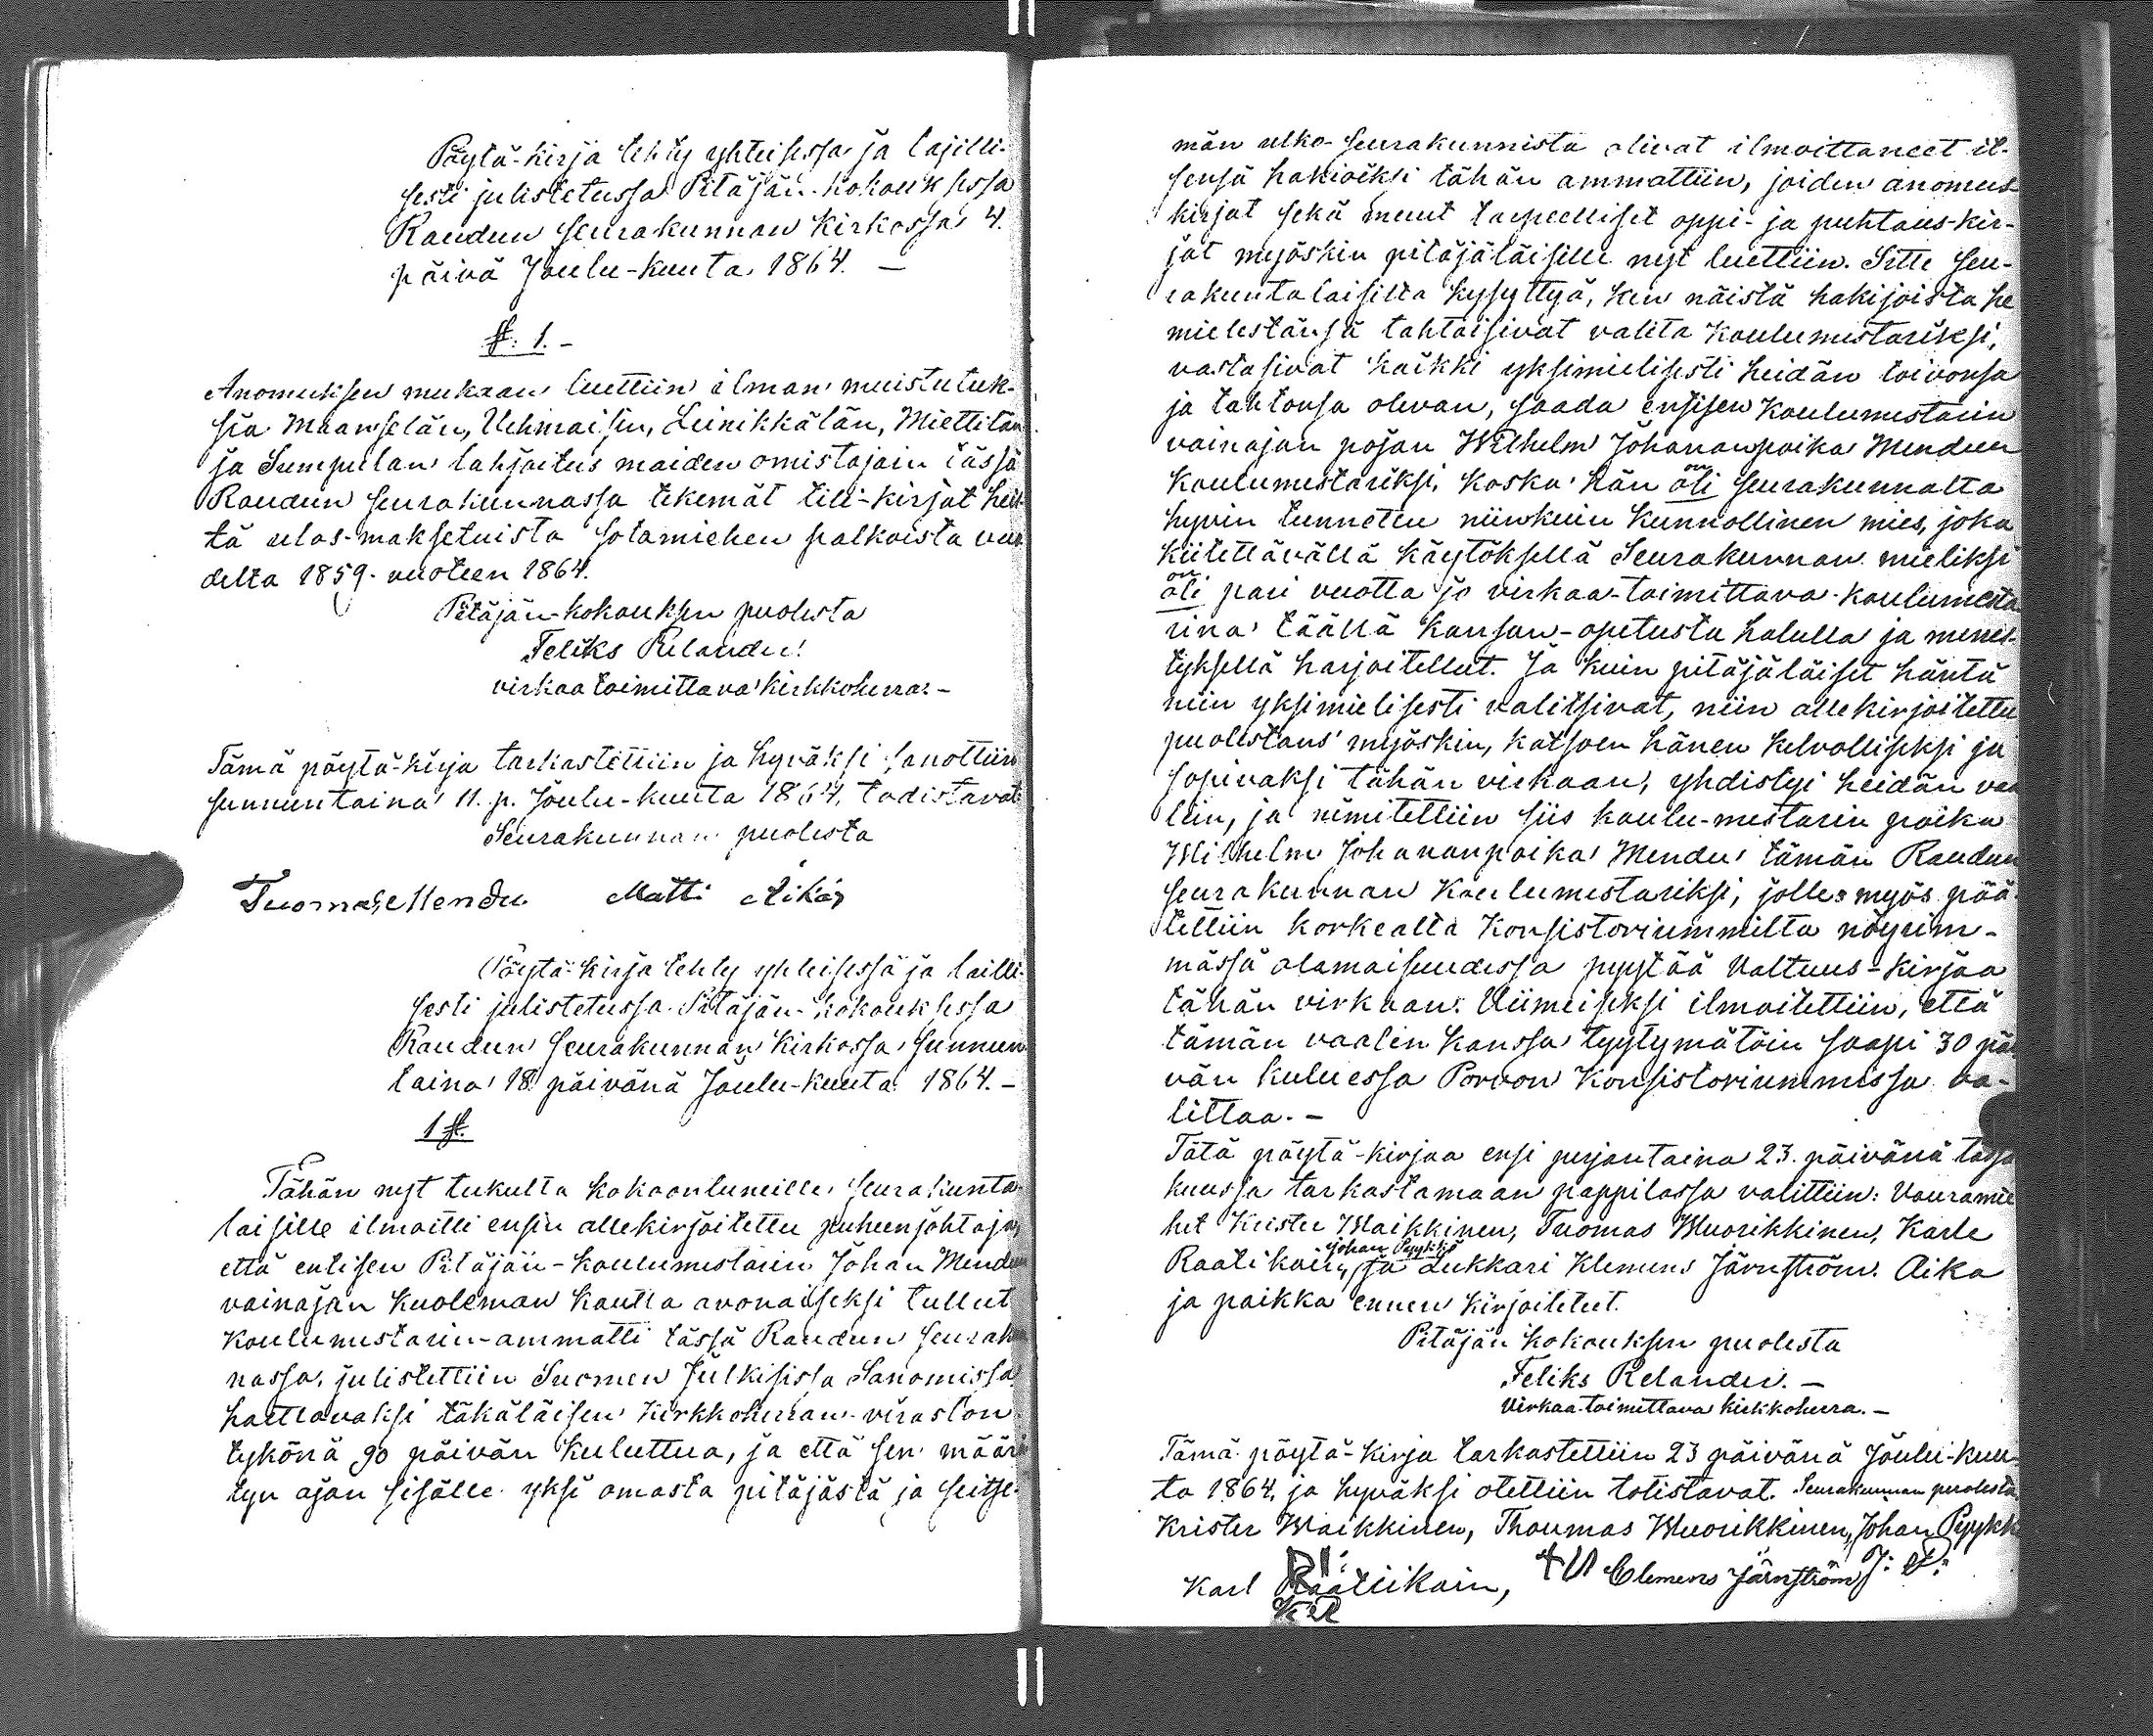 Pöytä-kirja tehty yhteisessa ja lajilli-
sesti julistetussa Pitäjän-kokouksessa
Raudun seurakunnan kirkossa 4.
päivä Joulu-kuuta 1864. —
§. 1. -
Anomuksen mukaan luettiin ilman muistutuk-
sia Maanselän, Uchmaisin, Leinikkälän, Miettilän
ja Sumpulan lahjoitus maiden omistajain tässä
Raudun seurakunnassa tekemät tili-kirjat heil-
tä ulos-maksetuista sotamiehen palkoista vuo-
delta 1859. vuoteen 1864.
Pitäjän-kokouksen puolesta
Feliks Relander.
virkaa toimittava kirkkoherra. -
Tämä pöytä-kirja tarkastettiin ja hyväksi sanottiin
sunnuntaina 11. p. Joulu-kuuta 1864, todistavat
Seurakunnan puolesta
Tuomas Mendu Matti
Pöytä-kirja tehty yhteisessä ja lailli-
sesti julistetussa Pitäjän-kokouksessa
Raudun Seurakunnan kirkossa sunnun-
taina 18 päivänä Joulu-kuuta 1864. -
1 §.
Tähän nyt tukulta kokoontuneille seurakunta-
laisille ilmoitti ensin allekirjoitettu puheenjohtaja,
että entisen Pitäjän-koulumestarin Johan Mendun
vainajan kuoleman kautta avonaiseksi tullut
koulumestarin-ammatti tässä Raudun seurakun-
nassa, julistettiin Suomen Julkisissa Sanomissa
haettavaksi täkäläisen kirkkoherran-viraston
tykönä 90 päivän kuluttua, ja että sen määrä-
tyn ajan sisälle yksi omasta pitäjästä ja seitse-
män ulko-seurakunnista olivat ilmoittaneet it-
sensä hakioiksi tähän ammattiin, joiden anomus-
kirjat sekä muut tarpeelliset oppi- ja puhtaus-kir-
jat myöskin pitäjäläisille nyt luettiin. Sitte seu-
rakuntalaisilta kysyttyä, ken näistä hakijoista he
mielestänsä tahtoisivat valita koulumestariksi,
vastasivat kaikki yksimielisesti heidän toivonsa
ja tahtonsa olevan, saada entisen koulumestarin
vainajan pojan Wilhelm Johananpoika Mendun
koulumestariksi, koska hän on oli seurakunnalta
hyvin tunnettu niinkuin kunnollinen mies, joka
kiitettävällä käytöksellä Seurakunnan mieliksi
on oli pari vuotta jo virkaa-toimittava-koulumesta
rina täällä kansan-opetusta halulla ja menes-
tyksellä harjoitellut. Ja kuin pitäjäläiset häntä
niin yksimielisesti valitsivat, niin allekirjoitettu
puolestans myöskin, katsoen hänen kelvolliseksi ja
sopivaksi tähän virkaan, yhdistyi heidän vaa
liin, ja nimitettiin siis koulu-mestarin poika
Wilhelm Johananpoika Mendu tämän Raudun
seurakunnan koulumestariksi, jolle myös pää-
tettiin korkealta Konsistoriummilta nöyrim-
mässä alamaisuudessa pyytää Valtuus-kirjaa
tähän virkaan. Viimeiseksi ilmoitettiin, että
tämän vaalin kanssa tyytymätöin saapi 30 päi
vän kuluessa Porvoon Konsistoriummissa va-
littaa. —
Tätä pöytä-kirjaa ensi perjantaina 23. päivänä tässä
kuussa tarkastamaan pappilassa valittiin: Vouramie
het Krister Waikkinen, Tuomas Wuorikkinen, Karle
Raatikain, Johan Pyykkö ja Lukkari Klemens Järnström. Aika
ja paikka ennen kirjoitetut.
Pitäjän kokouksen puolesta
Feliks Relander. —
Virkaa-toimittava kirkkoherra. —
Tämä pöytä-kirja tarkastettiin 23 päivänä Joulu-kuu-
ta 1864, ja hyväksi otettiin totistavat. Seurakunnan puolesta
Krister Waikkinen, Thoumas Wuorikkinen, Johan Pyykk
Karl Raatiikain, Clemens Järnström J: P: